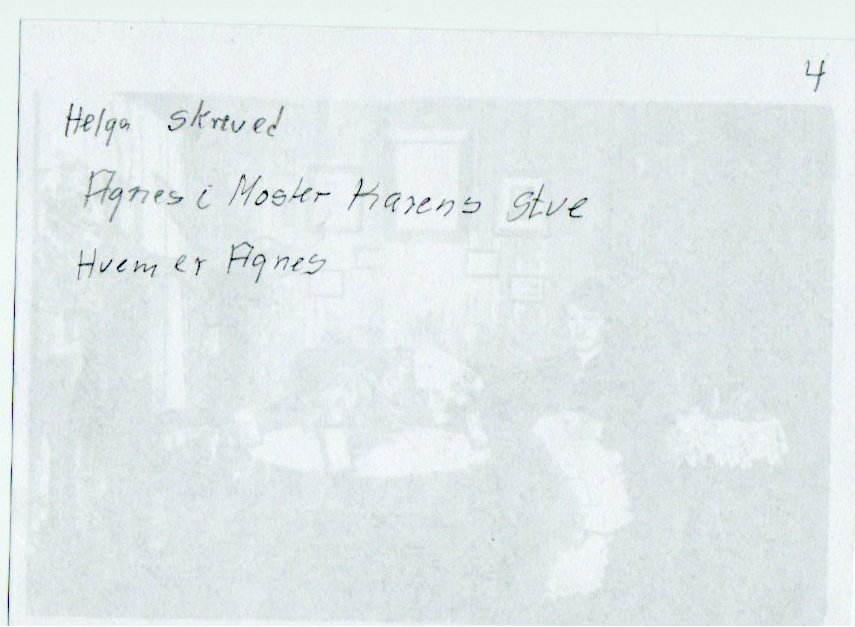 4
Helga skreved
Agnes i Moster Karens Stue
Hvem er Agnes